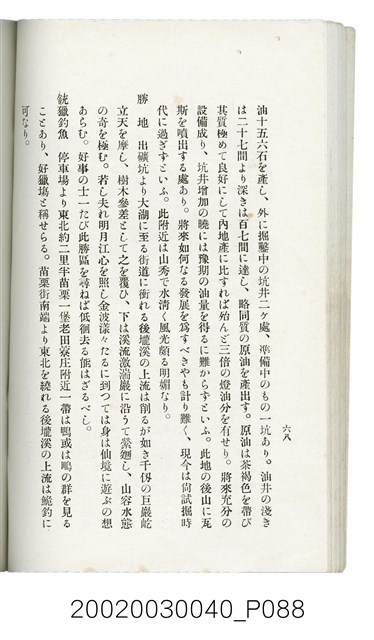 六八
油十五六石を產し、外に掘鑿中の坑井二ケ處、準備中のもの一坑あり。油井の淺き
は二十七間より深きは百七間に達し、略同質の原油を產出す。原油は茶褐色を帶び
其質極めて良好にして內地產に比すれば殆んど三倍の燈油分を有せり。將來充分の
設備成り、坑井增加の曉には豫期の油量を得るに難からずといふ。此地の後山に瓦
斯を噴出する處あり。將來如何なる發展を爲すべきやも計り難く、現今は尙試掘時
代に過ぎずといふ。此附近は山秀で水淸く風光頗る明媚なり。
勝地 出礦坑より大湖に至る街道に衝れる後壠溪の上流は削るが如き千仭の巨巖屹
立天を摩し、樹木參差として之を覆ひ、下は溪流激湍巖に沿うて縈廻し、山容水態
の奇を極む。若し夫れ明月江心を照し金波漾々たるに到つては身は仙境に遊ぶの想
あらむ。好事の士一たび此勝區を尋ねば低徊去る能はざるべし。
銃獵釣魚 停車場より東北約二里半苗栗一堡老田寮庄附近一帶は鴫或は鴨の群を見る
ことあり、好獵塲と稱せらる。苗栗街南端より東北を繞れる後壠溪の上流は鮠釣に
可なり。
20020030040_P088